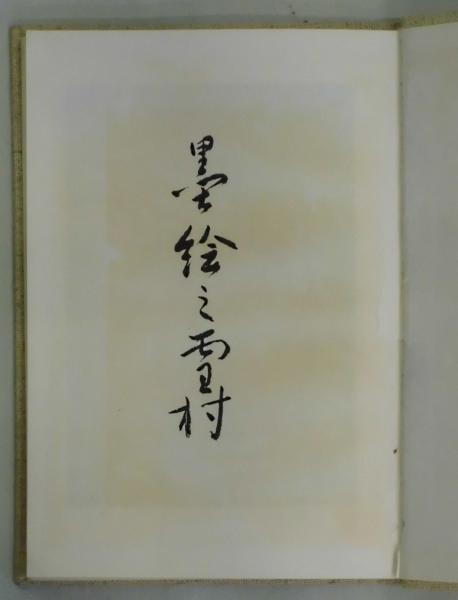 墨絵之雪村